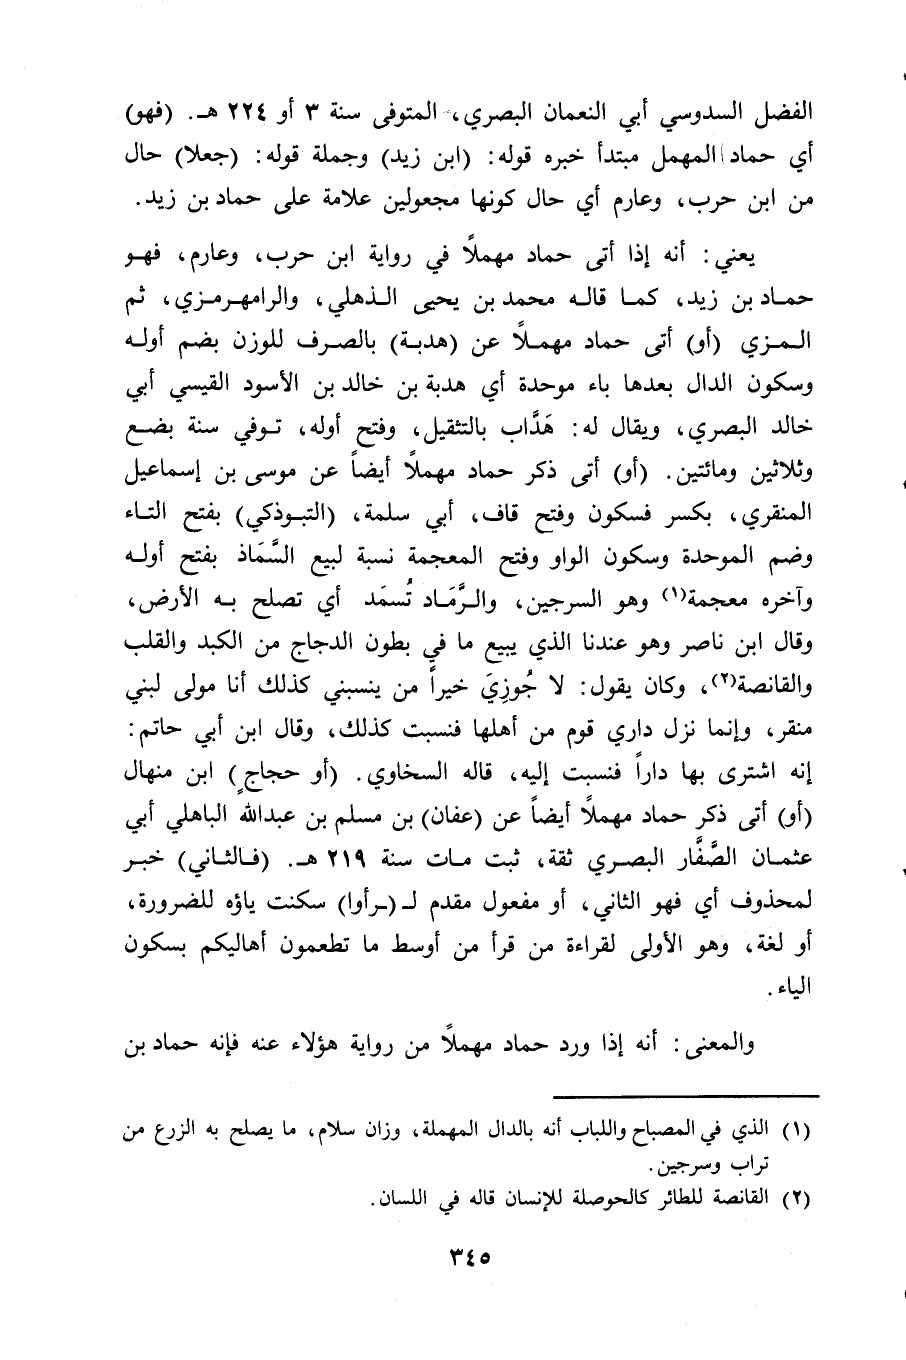 الفضل السدوسي أبي النعمان البصري، المتوفى سنة ٣ أو ٢٢٤ هـ. (فهو)
أي حماد المهمل مبتدأ خبره قوله: (ابن زيد) وجملة قوله: (جعلا) حال
من ابن حرب، وعارم أي حال كونها مجعولين علامة على حماد بن زيد.
يعني: أنه إذا أتى حماد مهملاً في رواية ابن حرب، وعارم، فهو
حماد بن زيد، كما قاله محمد بن يحيى الذهلي، والرامهرمزي، ثم
المزي (أو) أتى حماد مهملاً عن (هدبة) بالصرف للوزن بضم أوله
وسكون الدال بعدها باء موحدة أي هدبة بن خالد بن الأسود القيسي أبي
خالد البصري، ويقال له: هَدَّاب بالتثقيل، وفتح أوله، توفي سنة بضع
وثلاثين ومائتين. (أو) أتى ذكر حماد مهملاً أيضاً عن موسى بن إسماعيل
المنقري، بكسر فسكون وفتح قاف، أبي سلمة، (التبوذكي) بفتح التاء
وضم الموحدة وسكون الواو وفتح المعجمة نسبة لبيع السَّمَاذ بفتح أوله
وآخره معجمة(١) وهو السرجين، والرَّمَاد تُسمَد أي تصلح به الأرض،
وقال ابن ناصر وهو عندنا الذي يبيع ما في بطون الدجاج من الكبد والقلب
والقانصة(٢)، وكان يقول: لا جُوزِيَ خيراً من ينسبني كذلك أنا مولى لبني
منقر، وإنما نزل داري قوم من أهلها فنسبت كذلك، وقال ابن أبي حاتم:
إنه اشترى بها داراً فنسبت إليه، قاله السخاوي. (أو حجاجٍ) ابن منهال
(أو) أتى ذكر حماد مهملاً أيضاً عن (عفان) بن مسلم بن عبدالله الباهلي أبي
عثمان الصَّفَّار البصري ثقة، ثبت مات سنة ٢١٩ هـ. (فالثاني) خبر
لمحذوف أي فهو الثاني، أو مفعول مقدم لـ (ـرأوا) سكنت ياؤه للضرورة،
أو لغة، وهو الأولى لقراءة من قرأ من أوسط ما تطعمون أهاليكم بسكون
الياء.
والمعنى: أنه إذا ورد حماد مهملاً من رواية هؤلاء عنه فإنه حماد بن
(١) الذي في المصباح واللباب أنه بالدال المهملة، وزان سلام، ما يصلح به الزرع من
تراب وسرجين.
(٢) القانصة للطائر كالحوصلة للإنسان قاله في اللسان.
٣٤٥